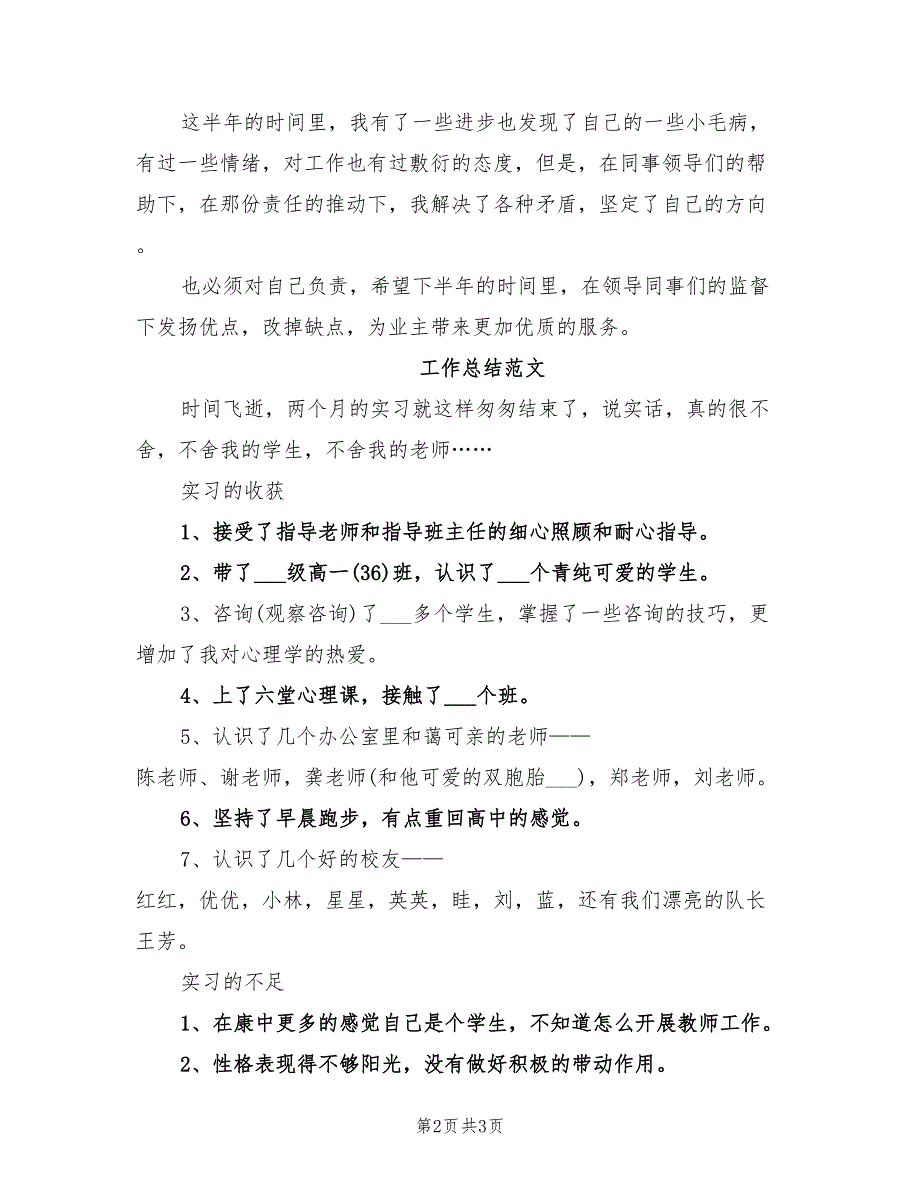 这半年的时间里，我有了一些进步也发现了自己的一些小毛病，
有过一些情绪，对工作也有过敷衍的态度，但是，在同事领导们的帮
助下，在那份责任的推动下，我解决了各种矛盾，坚定了自己的方向
。
也必须对自己负责，希望下半年的时间里，在领导同事们的监督
下发扬优点，改掉缺点，为业主带来更加优质的服务。
工作总结范文
时间飞逝，两个月的实习就这样匆匆结束了，说实话，真的很不
舍，不舍我的学生，不舍我的老师……
实习的收获
1、接受了指导老师和指导班主任的细心照顾和耐心指导。
2、带了___级高一(36)班，认识了___个青纯可爱的学生。
3、咨询(观察咨询)了___多个学生，掌握了一些咨询的技巧，更
增加了我对心理学的热爱。
4、上了六堂心理课，接触了___个班。
5、认识了几个办公室里和蔼可亲的老师——
陈老师、谢老师，龚老师(和他可爱的双胞胎___)，郑老师，刘老师。
6、坚持了早晨跑步，有点重回高中的感觉。
7、认识了几个好的校友——
红红，优优，小林，星星，英英，眭，刘，蓝，还有我们漂亮的队长
王芳。
实习的不足
1、在康中更多的感觉自己是个学生，不知道怎么开展教师工作。
2、性格表现得不够阳光，没有做好积极的带动作用。
第2页共3页